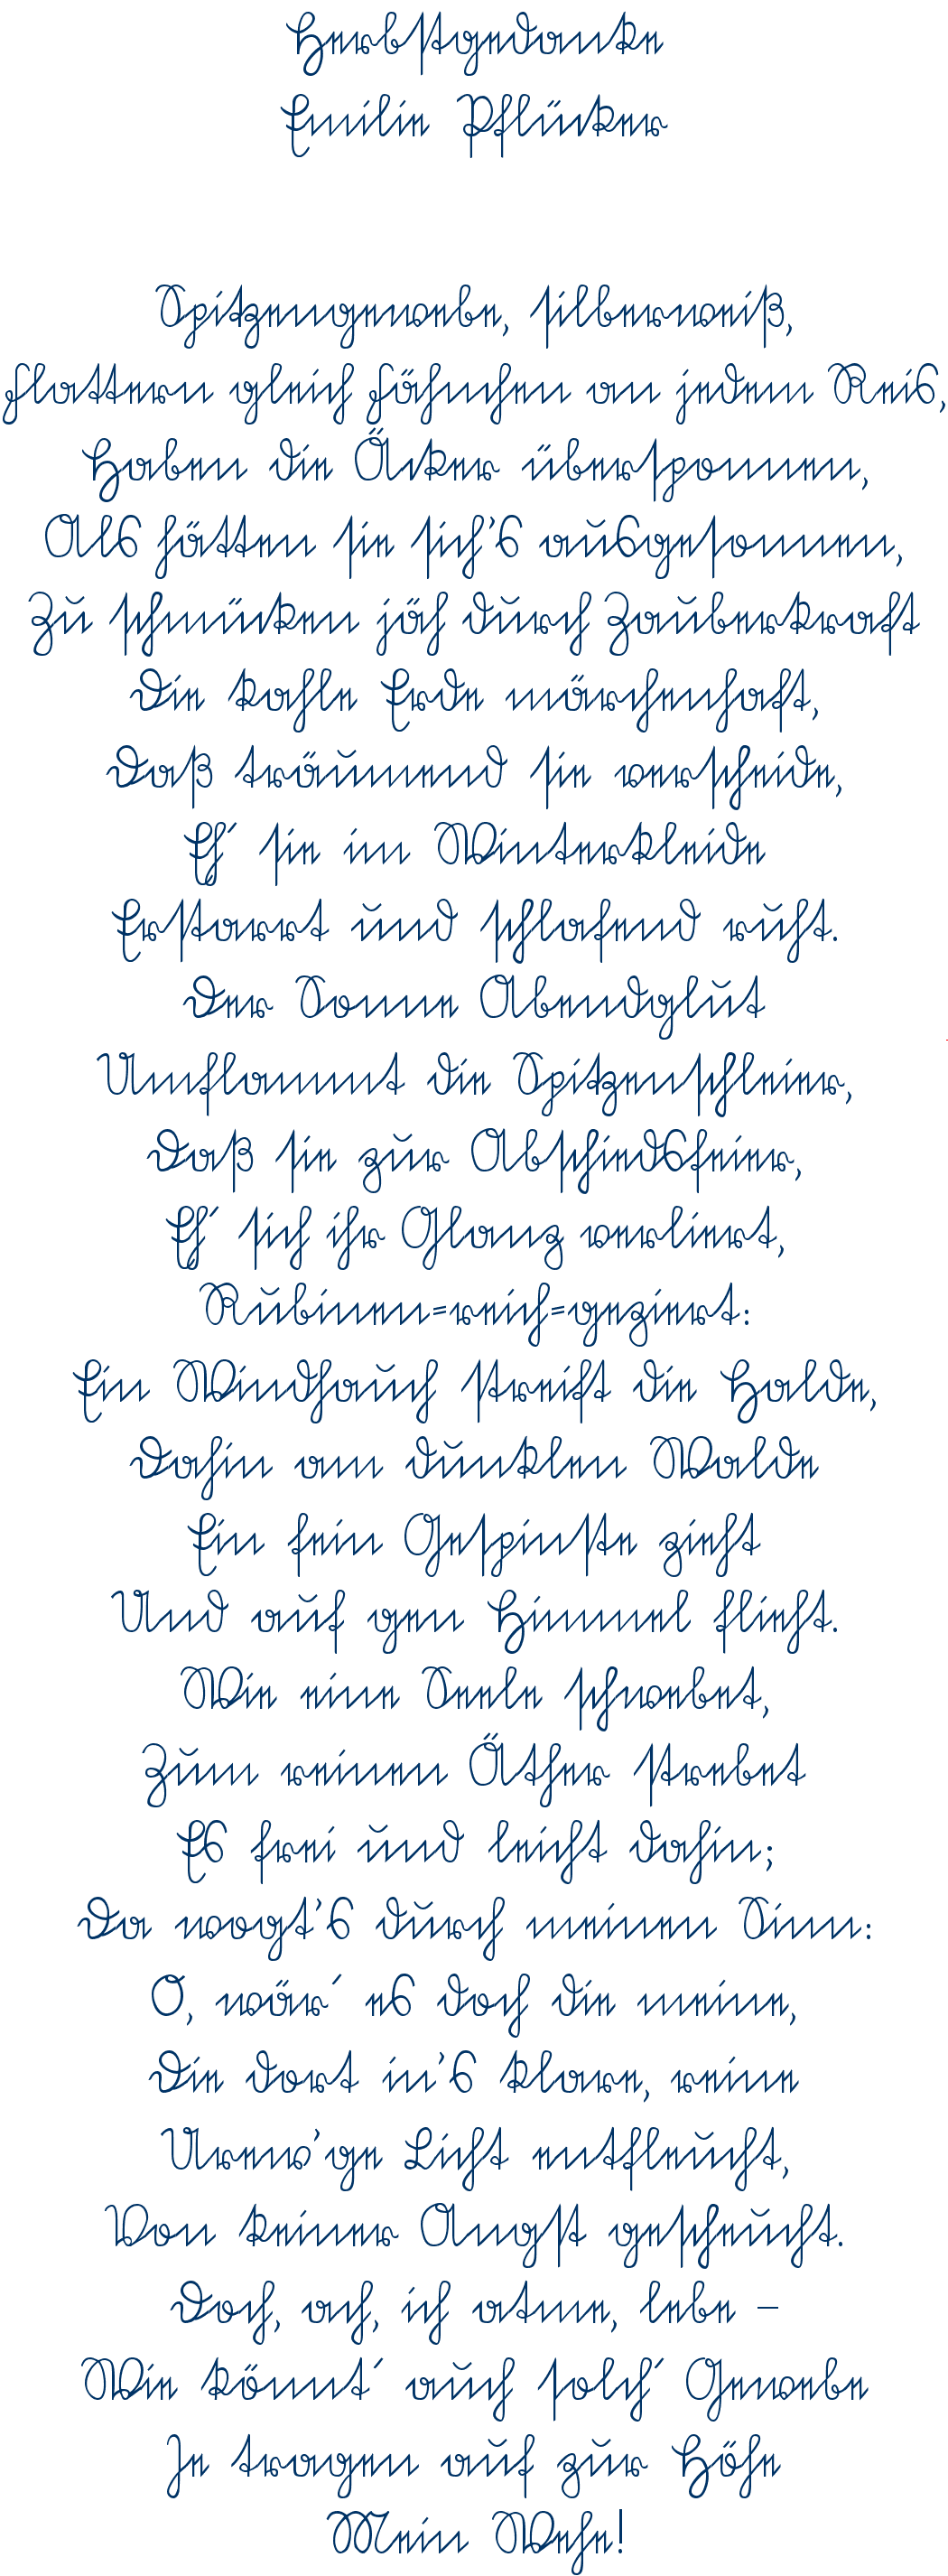 Herbstgedanke
Emilie Pflücker
Spitzengewebe, silberweiß,
flattern gleich Fähnchen an jedem Reis,
Haben die Äcker übersponnen,
Als hätten sie sich's ausgesonnen,
Zu schmücken jäh durch Zauberkraft
Die kahle Erde märchenhaft,
Daß träumend sie verscheide,
Eh´ sie im Winterkleide
Erstarrt und schlafend ruht.
Der Sonne Abendglut
Umflammt die Spitzenschleier,
Daß sie zur Abschiedsfeier,
Eh´ sich ihr Glanz verliert,
Rubinen=reich=geziert:
Ein Windhauch streift die Halde,
Dahin am dunklen Walde
Ein fein Gespinste zieht
Und auf gen Himmel flieht.
Wie eine Seele schwebet,
Zum reinen Äther strebet
Es frei und leicht dahin;
Da wogt's durch meinen Sinn:
O, wär´ es doch die meine,
Die dort in's klare, reine
Urew'ge Licht entfleucht,
Von keiner Angst gescheucht.
Doch, ach, ich atme, lebe –
Wie könnt´ auch solch´ Gewebe
Je tragen auf zur Höhe
Mein Wehe!